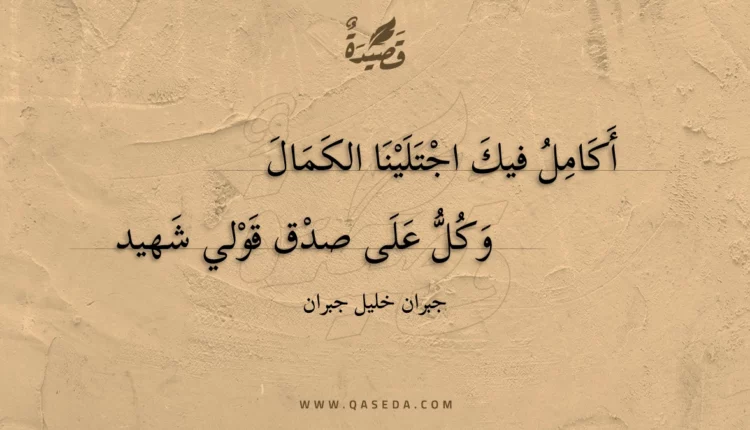 قَصِيْدَةٌ
أَكَامِلُ فيكَ اجْتَلَيْنَا الكَمَالَ
وَكُلُّ عَلَى صدْق قَوْلي شَهيد
جبران خليل جبران
WWW.QASEDA.COM